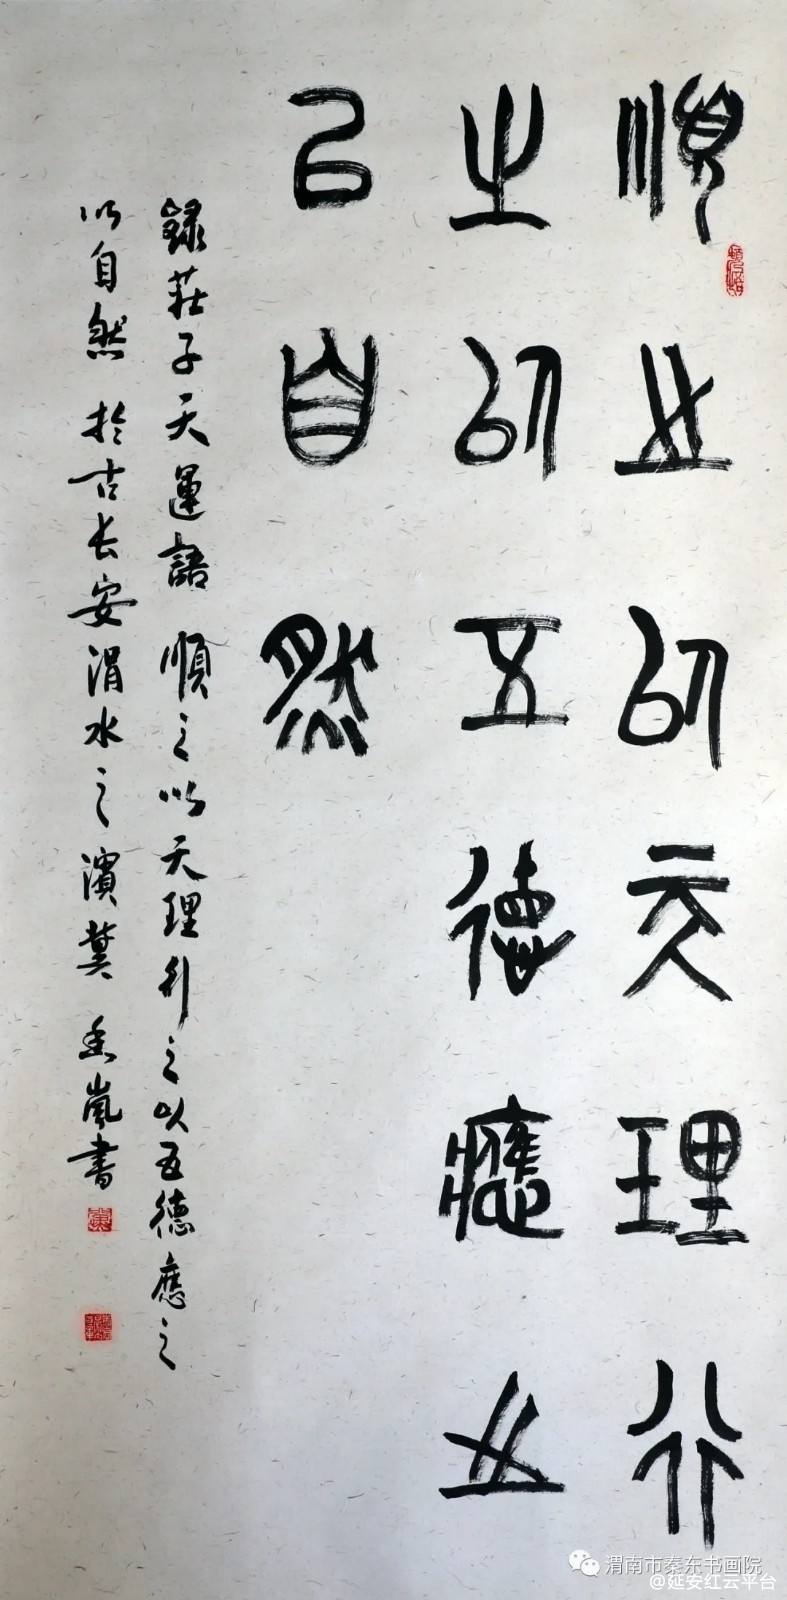 順之以天理行
之以五德應之
以自然
錄莊子天運語 順之以天理行之以五德應之
以自然 於古長安渭水之濱 冀 香嵐書
渭南市秦东书画院
@延安红云平台